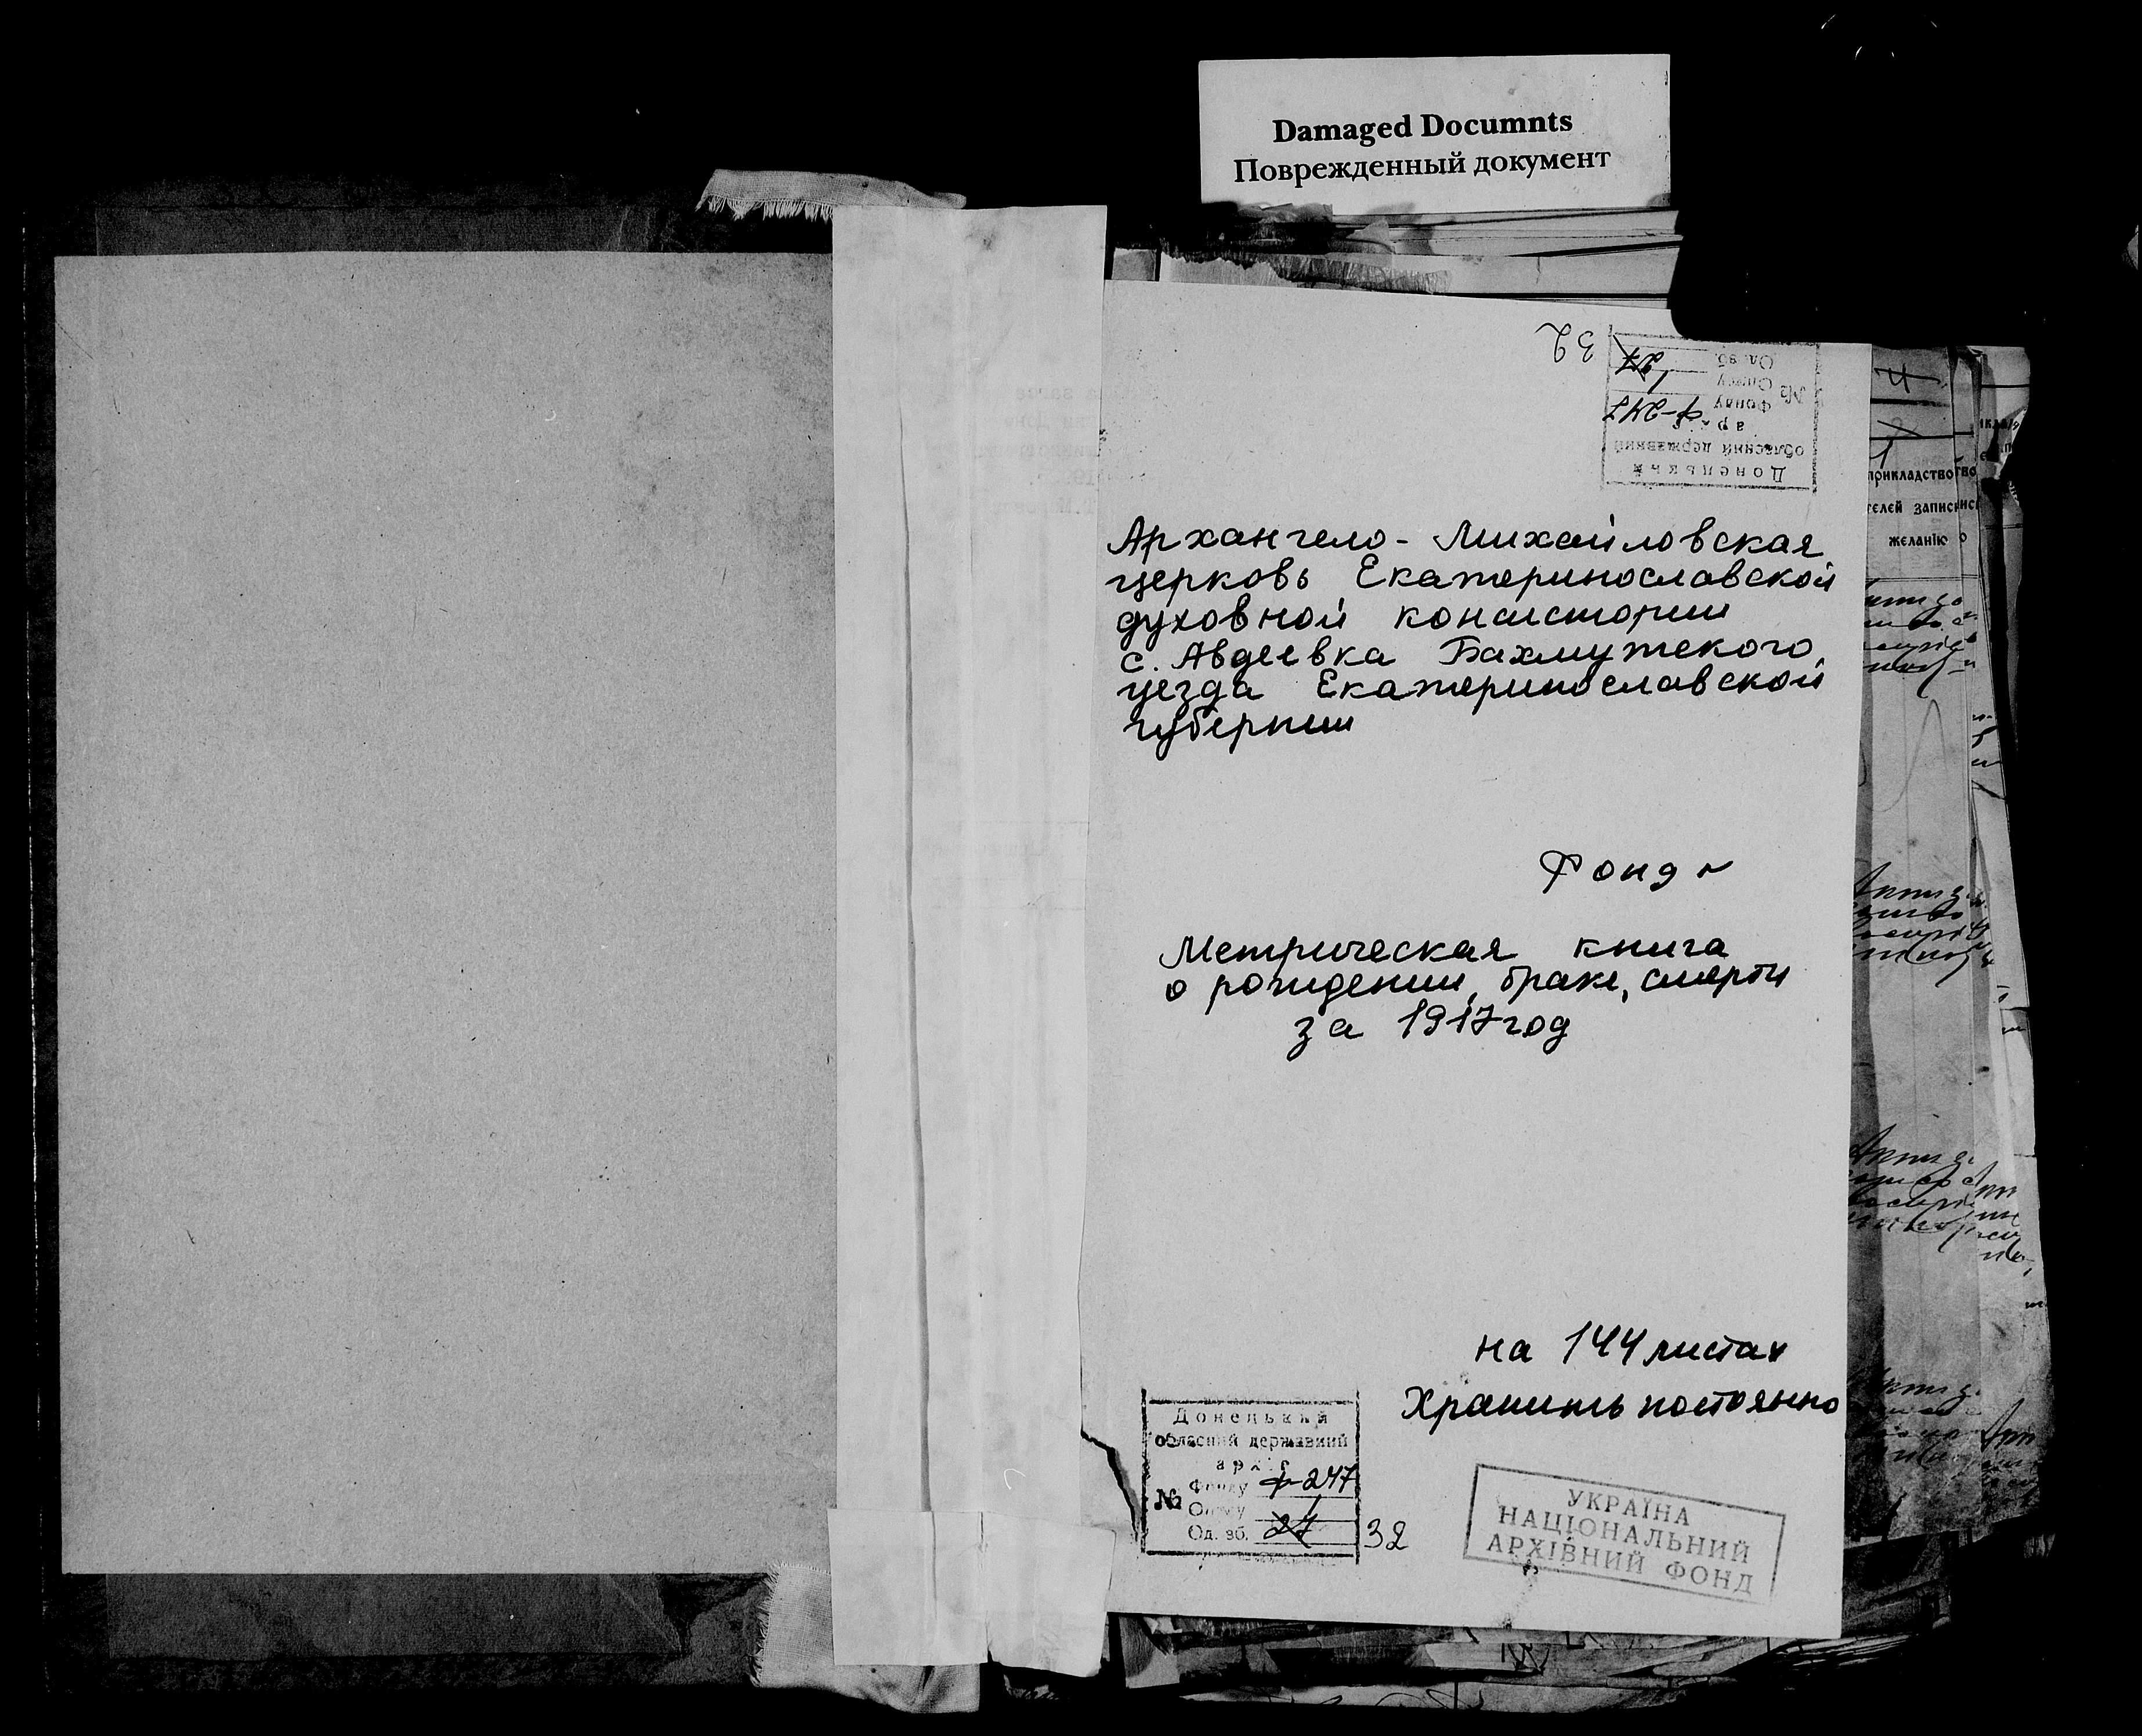 Damaged Documnts
Поврежденный документ
32
Донецький
обласний державний
архів
№ Фонду ф-247
Опису 1
Од. зб. 27
Архангело-Михайловская
церковь Екатеринославской
духовной консистории
с. Авдеевка Бахмутского
уезда Екатеринославской
губернии
Фонд
Метрическая книга
о рождении, браке, смерти
за 1917 год
на 144 листах
Хранить постоянно
Донецький
обласний державний
архів
№ Фонду ф-247
Опису 1
Од. зб. 27 32
УКРАЇНА
НАЦІОНАЛЬНИЙ
АРХІВНИЙ ФОНД
4
1
желанїю